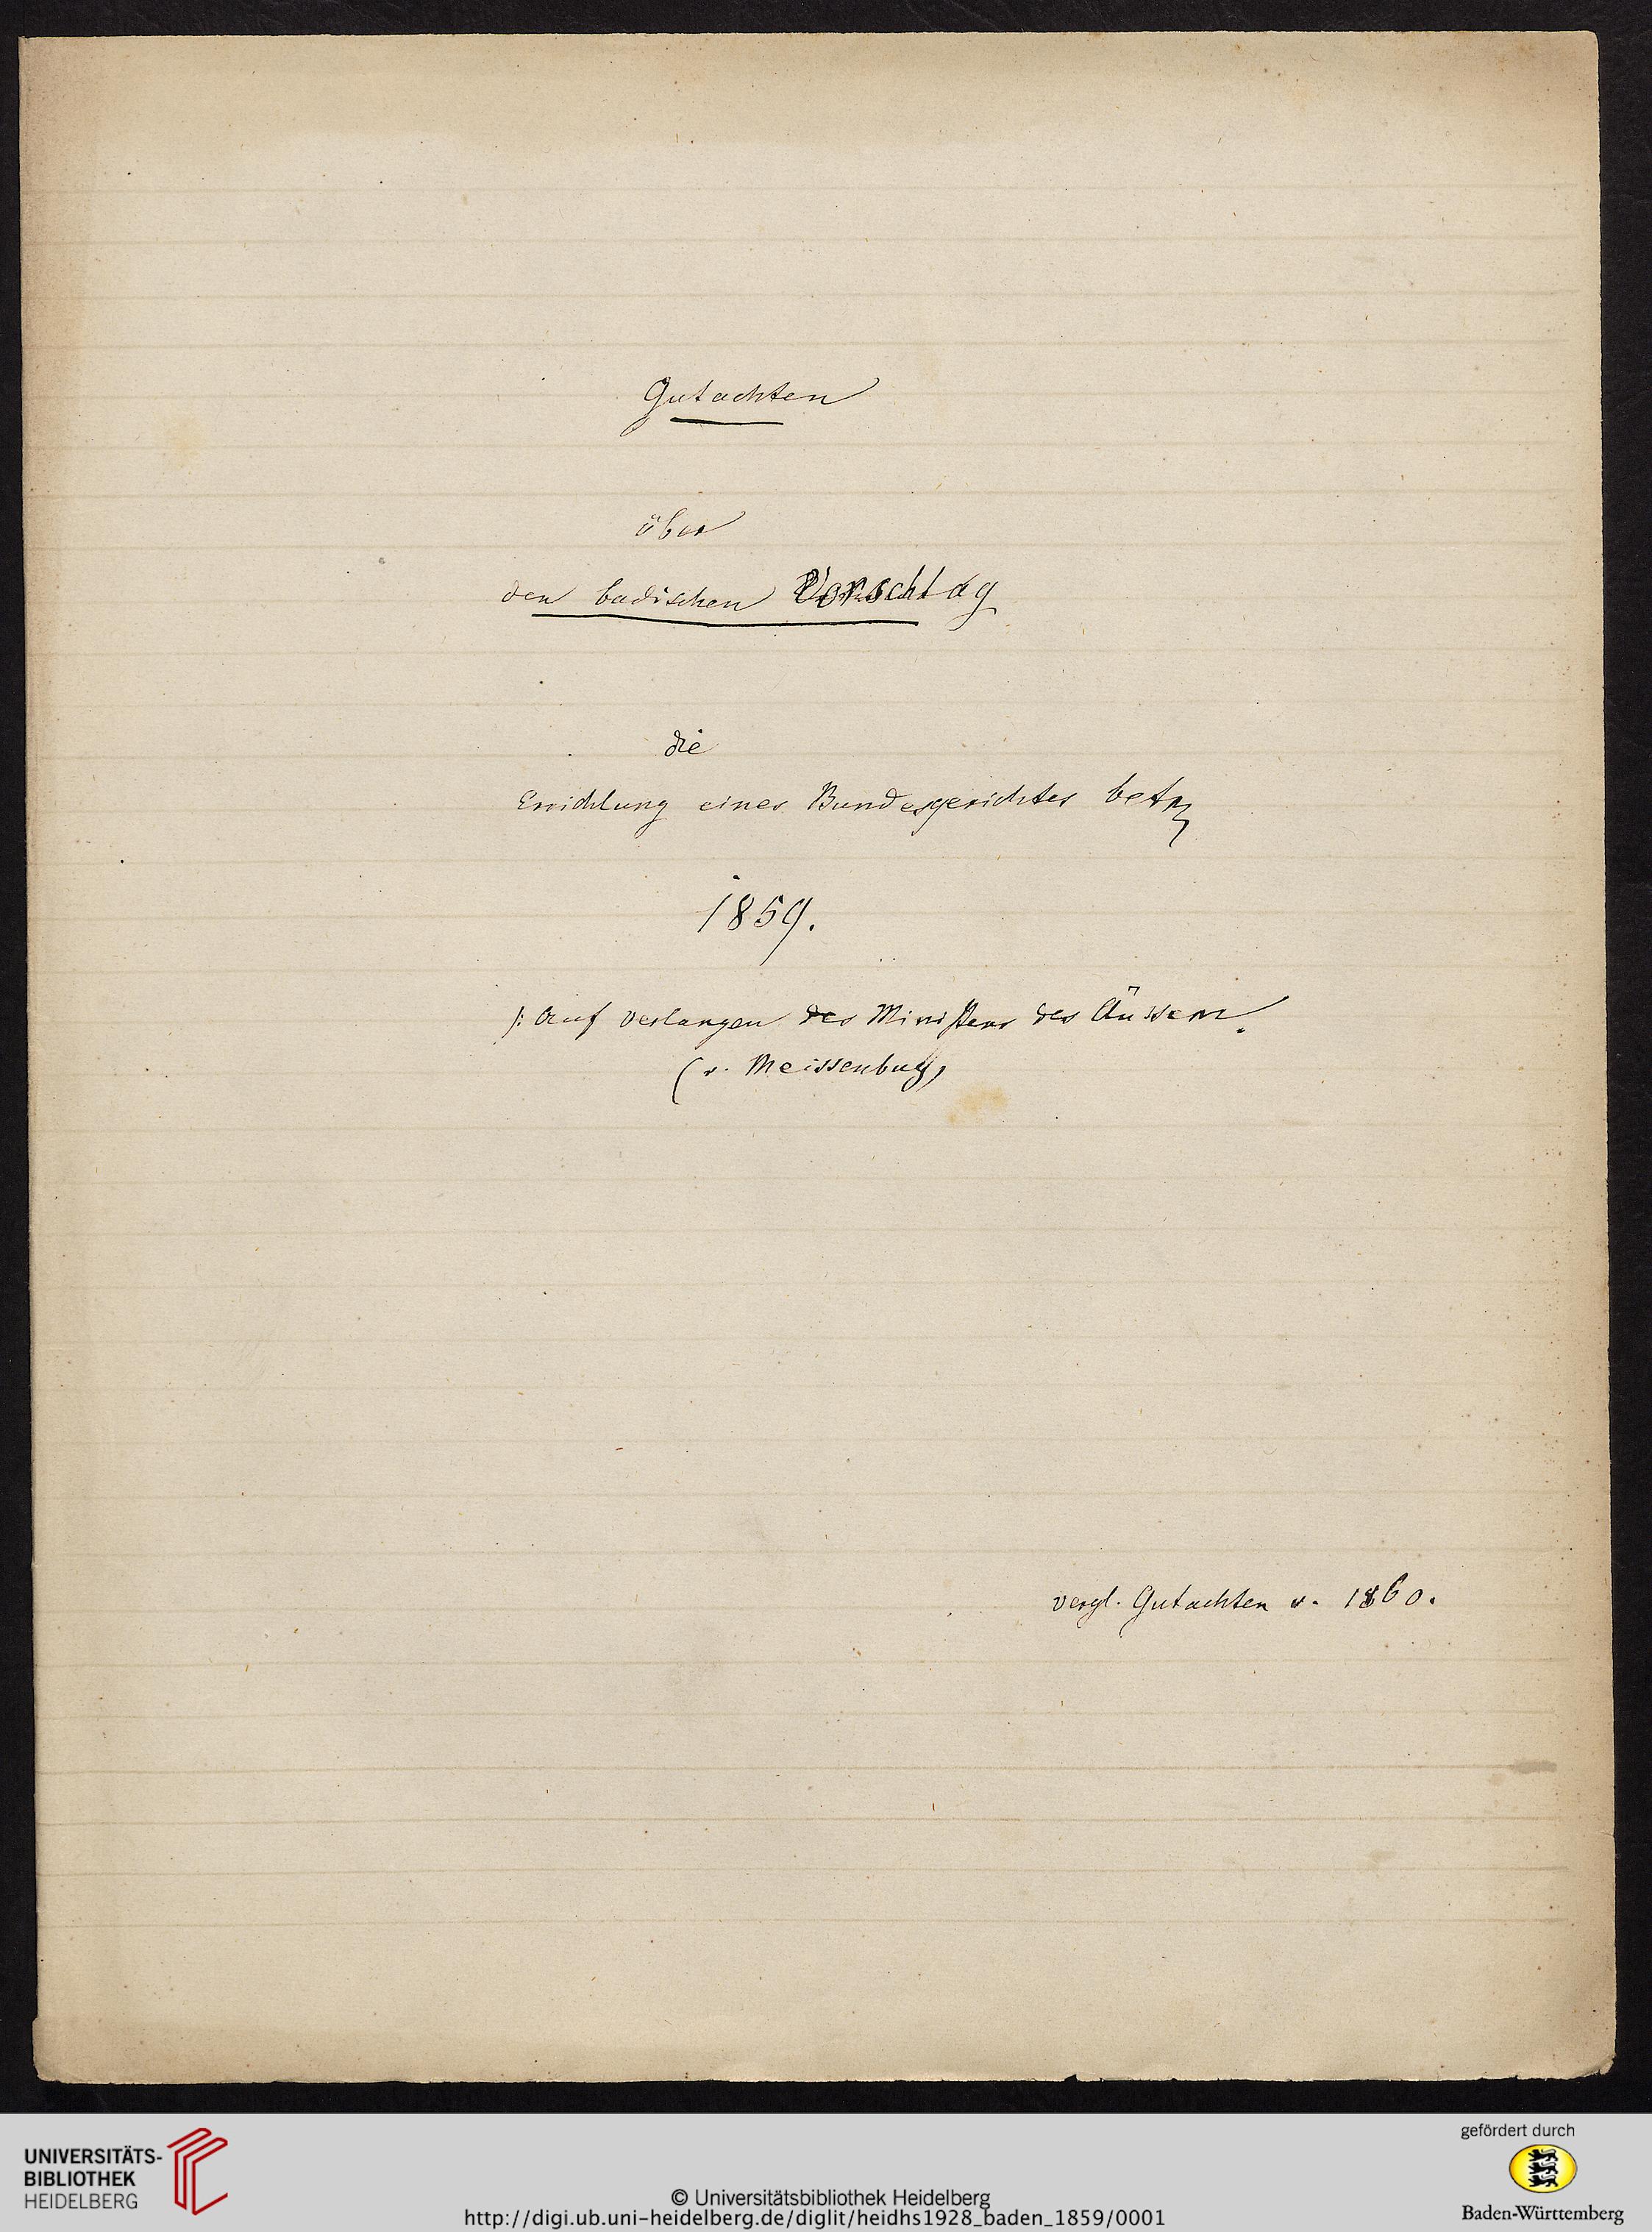 Gutachten
über
den badischen Vorschlag
die
Errichtung eines Bundesgerichtes betr
1859.
/: Auf Verlangen des Ministers des Äussern.
(v. Meissenbug)
vergl. Gutachten v. 1860.
UNIVERSITÄTS-
BIBLIOTHEK
HEIDELBERG
© Universitätsbibliothek Heidelberg
http://digi.ub.uni-heidelberg.de/diglit/heidhs1928_baden_1859/0001
gefördert durch
Baden-Württemberg